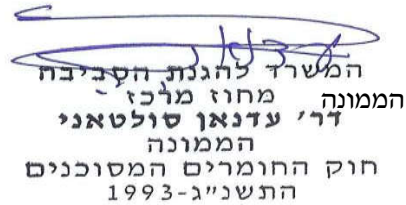 המשרד להגנת הסביבה
מחוז מרכז
הממונה
דר' עדנאן סולטאני
הממונה
חוק החומרים המסוכנים
התשנ"ג-1993